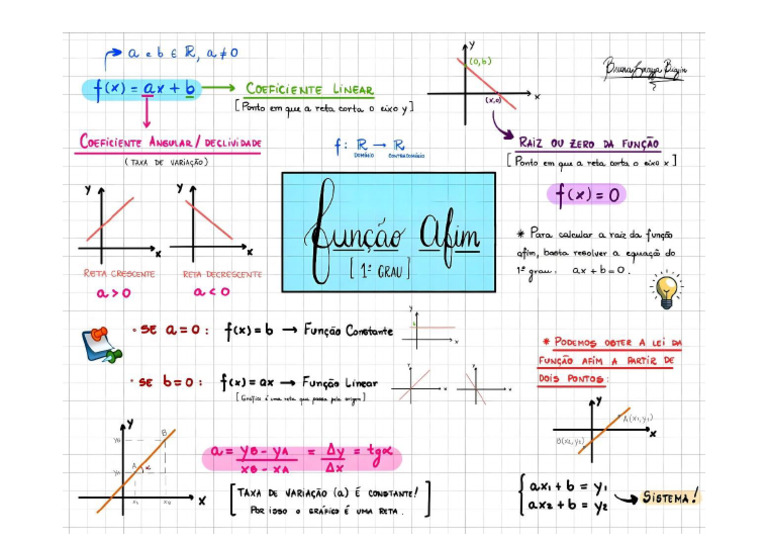 a e b ∈ ℝ, a ≠ 0
f(x) = ax + b → COEFICIENTE LINEAR
[Ponto em que a reta corta o eixo y]
COEFICIENTE ANGULAR/DECLIVIDADE
(TAXA DE VARIAÇÃO)
f: ℝ → ℝ
DOMÍNIO CONTRADOMÍNIO
y
(0,b)
(x,0)
x
RAIZ OU ZERO DA FUNÇÃO
[Ponto em que a reta corta o eixo x]
f(x) = 0
* Para calcular a raiz da função
afim, basta resolver a equação do
1º grau: ax + b = 0.
y
x
RETA CRESCENTE
a > 0
y
x
RETA DECRESCENTE
a < 0
Função Afim
[1º GRAU]
• SE a = 0: f(x) = b → Função Constante
y
x
• SE b = 0: f(x) = ax → Função Linear
[Gráfico é uma reta que passa pela origem]
* PODEMOS OBTER A LEI DA
FUNÇÃO AFIM A PARTIR DE
DOIS PONTOS:
y
A(x₁,y₁)
B(x₂,y₂)
x
y
yB
B
yA
A
α
xA
xB
x
a = yB - yA / xB - xA = Δy / Δx = tgα
[TAXA DE VARIAÇÃO (a) É CONSTANTE!
POR ISSO O GRÁFICO É UMA RETA.]
{ax₁ + b = y₁
ax₂ + b = y₂
→ SISTEMA!